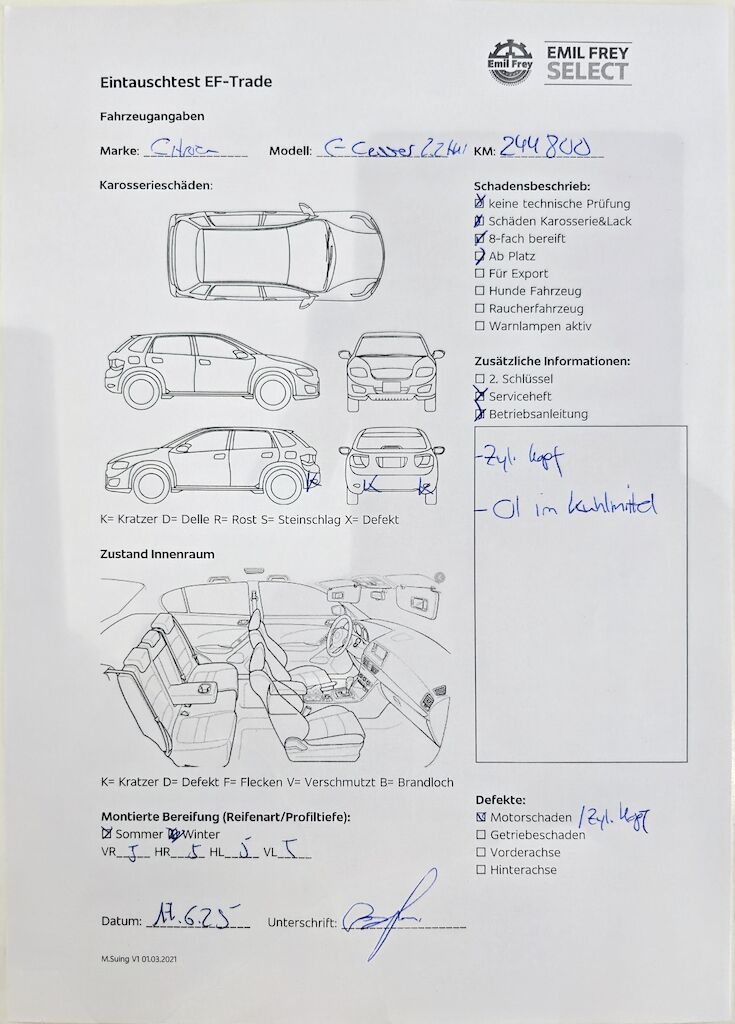 Emil Frey
EMIL FREY
SELECT
Eintauschtest EF-Trade
Fahrzeugangaben
Marke: Citroen Modell: C-Crosser 2.2 HDi KM: 244800
Karosserieschäden:
Schadensbeschrieb:
keine technische Prüfung
Schäden Karosserie&Lack
8-fach bereift
Ab Platz
Für Export
Hunde Fahrzeug
Raucherfahrzeug
Warnlampen aktiv
Zusätzliche Informationen:
2. Schlüssel
Serviceheft
Betriebsanleitung
- Zyl. Kopf
- Öl im Kühlmittel
K
K K
K= Kratzer D= Delle R= Rost S= Steinschlag X= Defekt
Zustand Innenraum
K= Kratzer D= Defekt F= Flecken V= Verschmutzt B= Brandloch
Montierte Bereifung (Reifenart/Profiltiefe):
Sommer Winter
VR 5 HR 5 HL 5 VL 5
Defekte:
Motorschaden / Zyl. Kopf
Getriebeschaden
Vorderachse
Hinterachse
Datum: 17.6.25 Unterschrift:
M.Suing V1 01.03.2021